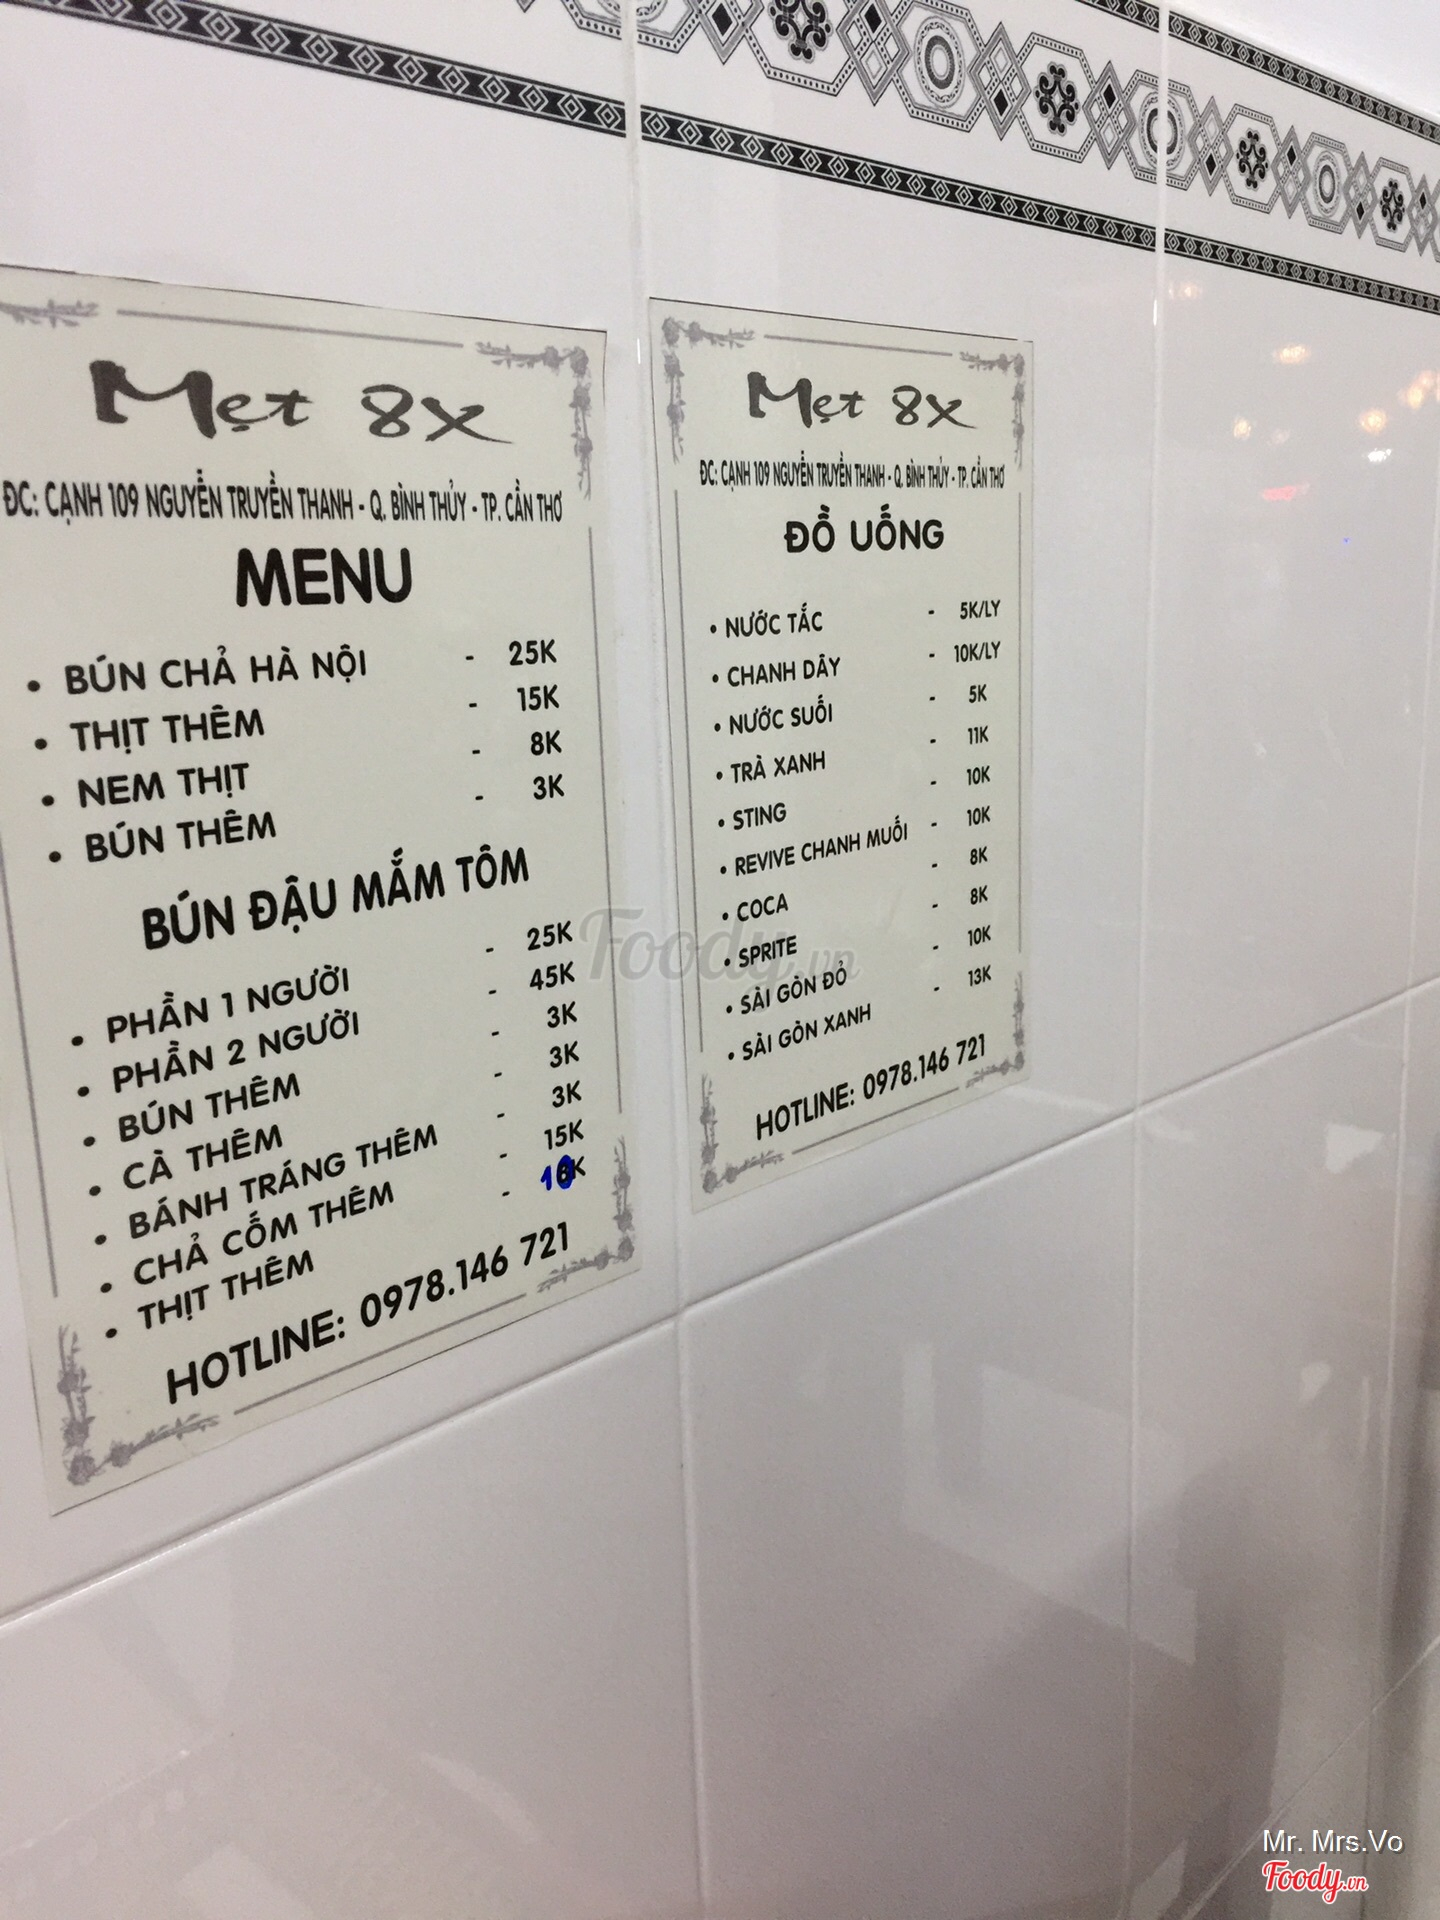 Mẹt 8X
ĐC: CẠNH 109 NGUYỄN TRUYỀN THANH - Q. BÌNH THỦY - TP. CẦN THƠ
MENU
• BÚN CHẢ HÀ NỘI - 25K
• THỊT THÊM - 15K
• NEM THỊT - 8K
• BÚN THÊM - 3K
BÚN ĐẬU MẮM TÔM
• PHẦN 1 NGƯỜI - 25K
• PHẦN 2 NGƯỜI - 45K
• BÚN THÊM - 3K
• CÀ THÊM - 3K
• BÁNH TRÁNG THÊM - 3K
• CHẢ CỐM THÊM - 15K
• THỊT THÊM - 10K
HOTLINE: 0978.146 721
Mẹt 8X
ĐC: CẠNH 109 NGUYỄN TRUYỀN THANH - Q. BÌNH THỦY - TP. CẦN THƠ
ĐỒ UỐNG
• NƯỚC TẮC - 5K/LY
• CHANH DÂY - 10K/LY
• NƯỚC SUỐI - 5K
• TRÀ XANH - 11K
• STING - 10K
• REVIVE CHANH MUỐI - 10K
• COCA - 8K
• SPRITE - 8K
• SÀI GÒN ĐỎ - 10K
• SÀI GÒN XANH - 13K
HOTLINE: 0978.146 721
Foody.vn
Mr. Mrs.Vo
Foody.vn